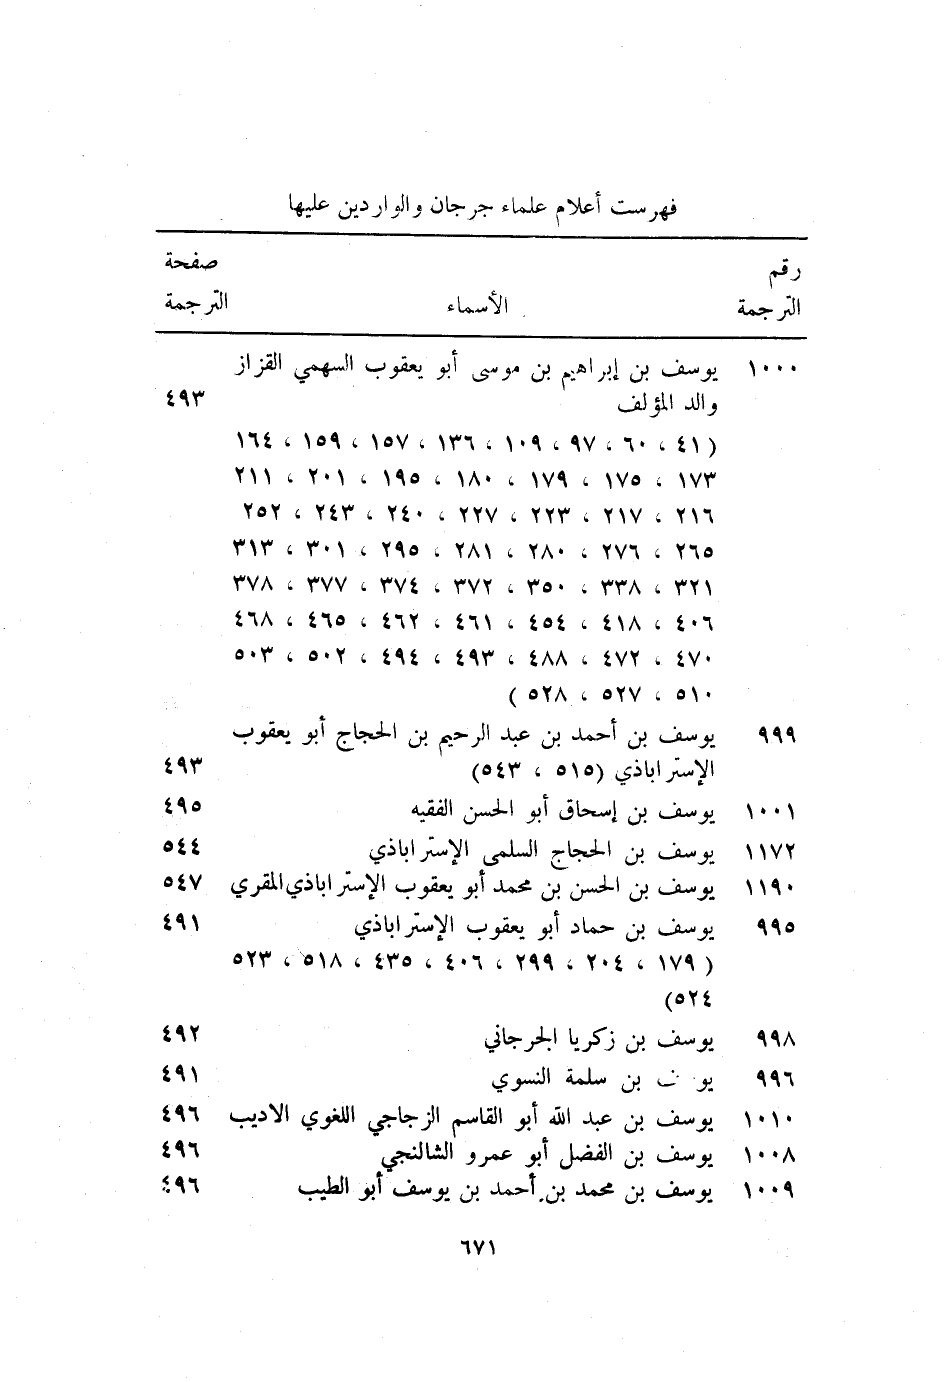 فهرست أعلام علماء جرجان والواردين عليها
رقم صفحة
الترجمة الأسماء الترجمة
١٠٠٠ يوسف بن إبراهيم بن موسى أبو يعقوب السهمي القزاز
والد المؤلف ٤٩٣
( ٤١ ، ٦٠ ، ٩٧ ، ١٠٩ ، ١٣٦ ، ١٥٧ ، ١٥٩ ، ١٦٤
١٧٣ ، ١٧٥ ، ١٧٩ ، ١٨٠ ، ١٩٥ ، ٢٠١ ، ٢١١
٢١٦ ، ٢١٧ ، ٢٢٣ ، ٢٢٧ ، ٢٤٠ ، ٢٤٣ ، ٢٥٢
٢٦٥ ، ٢٧٦ ، ٢٨٠ ، ٢٨١ ، ٢٩٥ ، ٣٠١ ، ٣١٣
٣٢١ ، ٣٣٨ ، ٣٥٠ ، ٣٧٢ ، ٣٧٤ ، ٣٧٧ ، ٣٧٨
٤٠٦ ، ٤١٨ ، ٤٥٤ ، ٤٦١ ، ٤٦٢ ، ٤٦٥ ، ٤٦٨
٤٧٠ ، ٤٧٢ ، ٤٨٨ ، ٤٩٣ ، ٤٩٤ ، ٥٠٢ ، ٥٠٣
٥١٠ ، ٥٢٧ ، ٥٢٨ )
٩٩٩ يوسف بن أحمد بن عبد الرحيم بن الحجاج أبو يعقوب
الإستراباذي (٥١٥ ، ٥٤٣) ٤٩٣
١٠٠١ يوسف بن إسحاق أبو الحسن الفقيه ٤٩٥
١١٧٢ يوسف بن الحجاج السلمى الإستراباذي ٥٤٤
١١٩٠ يوسف بن الحسن بن محمد أبو يعقوب الإستراباذي المقري ٥٤٧
٩٩٥ يوسف بن حماد أبو يعقوب الإستراباذي ٤٩١
( ١٧٩ ، ٢٠٤ ، ٢٩٩ ، ٤٠٦ ، ٤٣٥ ، ٥١٨ ، ٥٢٣
٥٢٤)
٩٩٨ يوسف بن زكريا الجرجاني ٤٩٢
٩٩٦ بن سلمة النسوي ٤٩١
١٠١٠ يوسف بن عبد الله أبو القاسم الزجاجي اللغوي الاديب ٤٩٦
١٠٠٨ يوسف بن الفضل أبو عمرو الشالنجي ٤٩٦
١٠٠٩ يوسف بن محمد بن أحمد بن يوسف أبو الطيب ٤٩٦
٦٧١